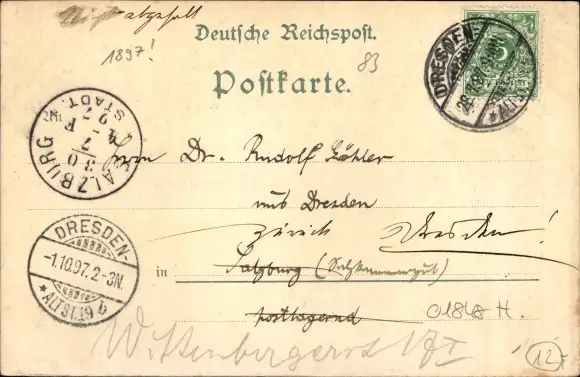 Nicht abgeholt
Deutsche Reichspost.
1897!
83
Postkarte.
DRESDEN-
ALTST.
SALZBURG
STADT.
30
7
97
Herrn Dr. Rudolf Köhler
aus Dresden
zurück Dresden!
DRESDEN-
-1.10.97. 2-3N.
*ALTST.19 b
in Salzburg (Salzkammergut)
postlagernd
01848 H.
Wittenbergerstr.
12